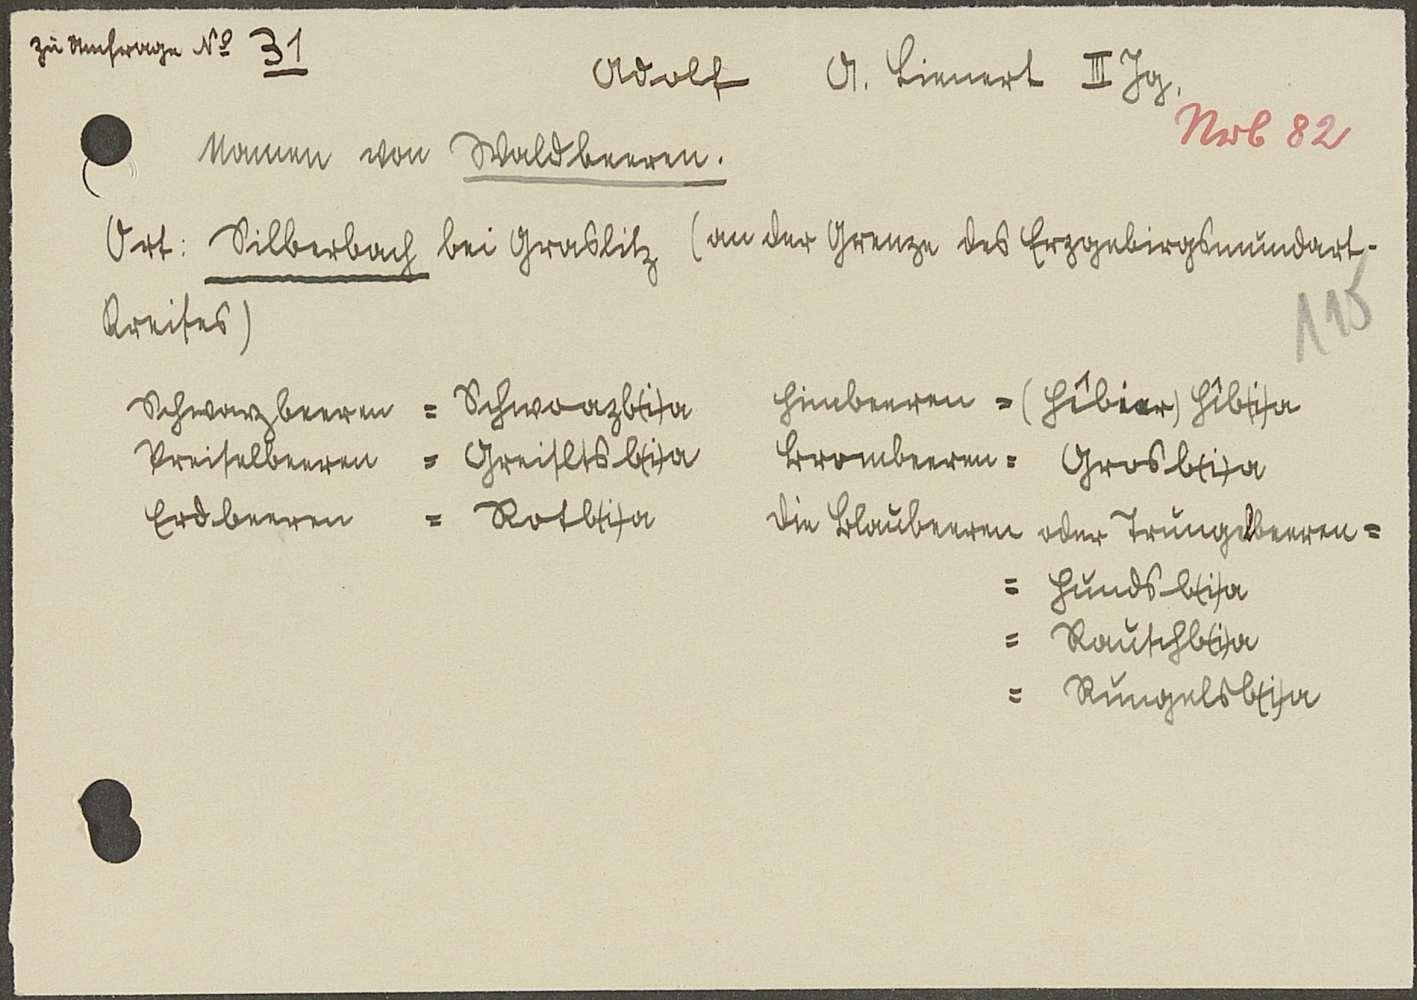 Zu Umfrage No 31
Adolf A. Lienert III Jg.
Nrb 82
Namen von Waldbeeren.
Ort: Silberbach bei Graslitz (an der Grenze des Erzgebirgsmundart-
Kreises)
115
Schwarzbeeren = Schwoazb(i)a
Preiselbeeren = Greisltsb(i)a
Erdbeeren = Rotb(i)a
Himbeeren = (Hîbier) Hîb(i)a
Brombeeren = Grosb(i)a
Die Blaubeeren oder Trungelbeeren =
= Hundsb(i)a
= Rauschb(i)a
= Rungelsb(i)a